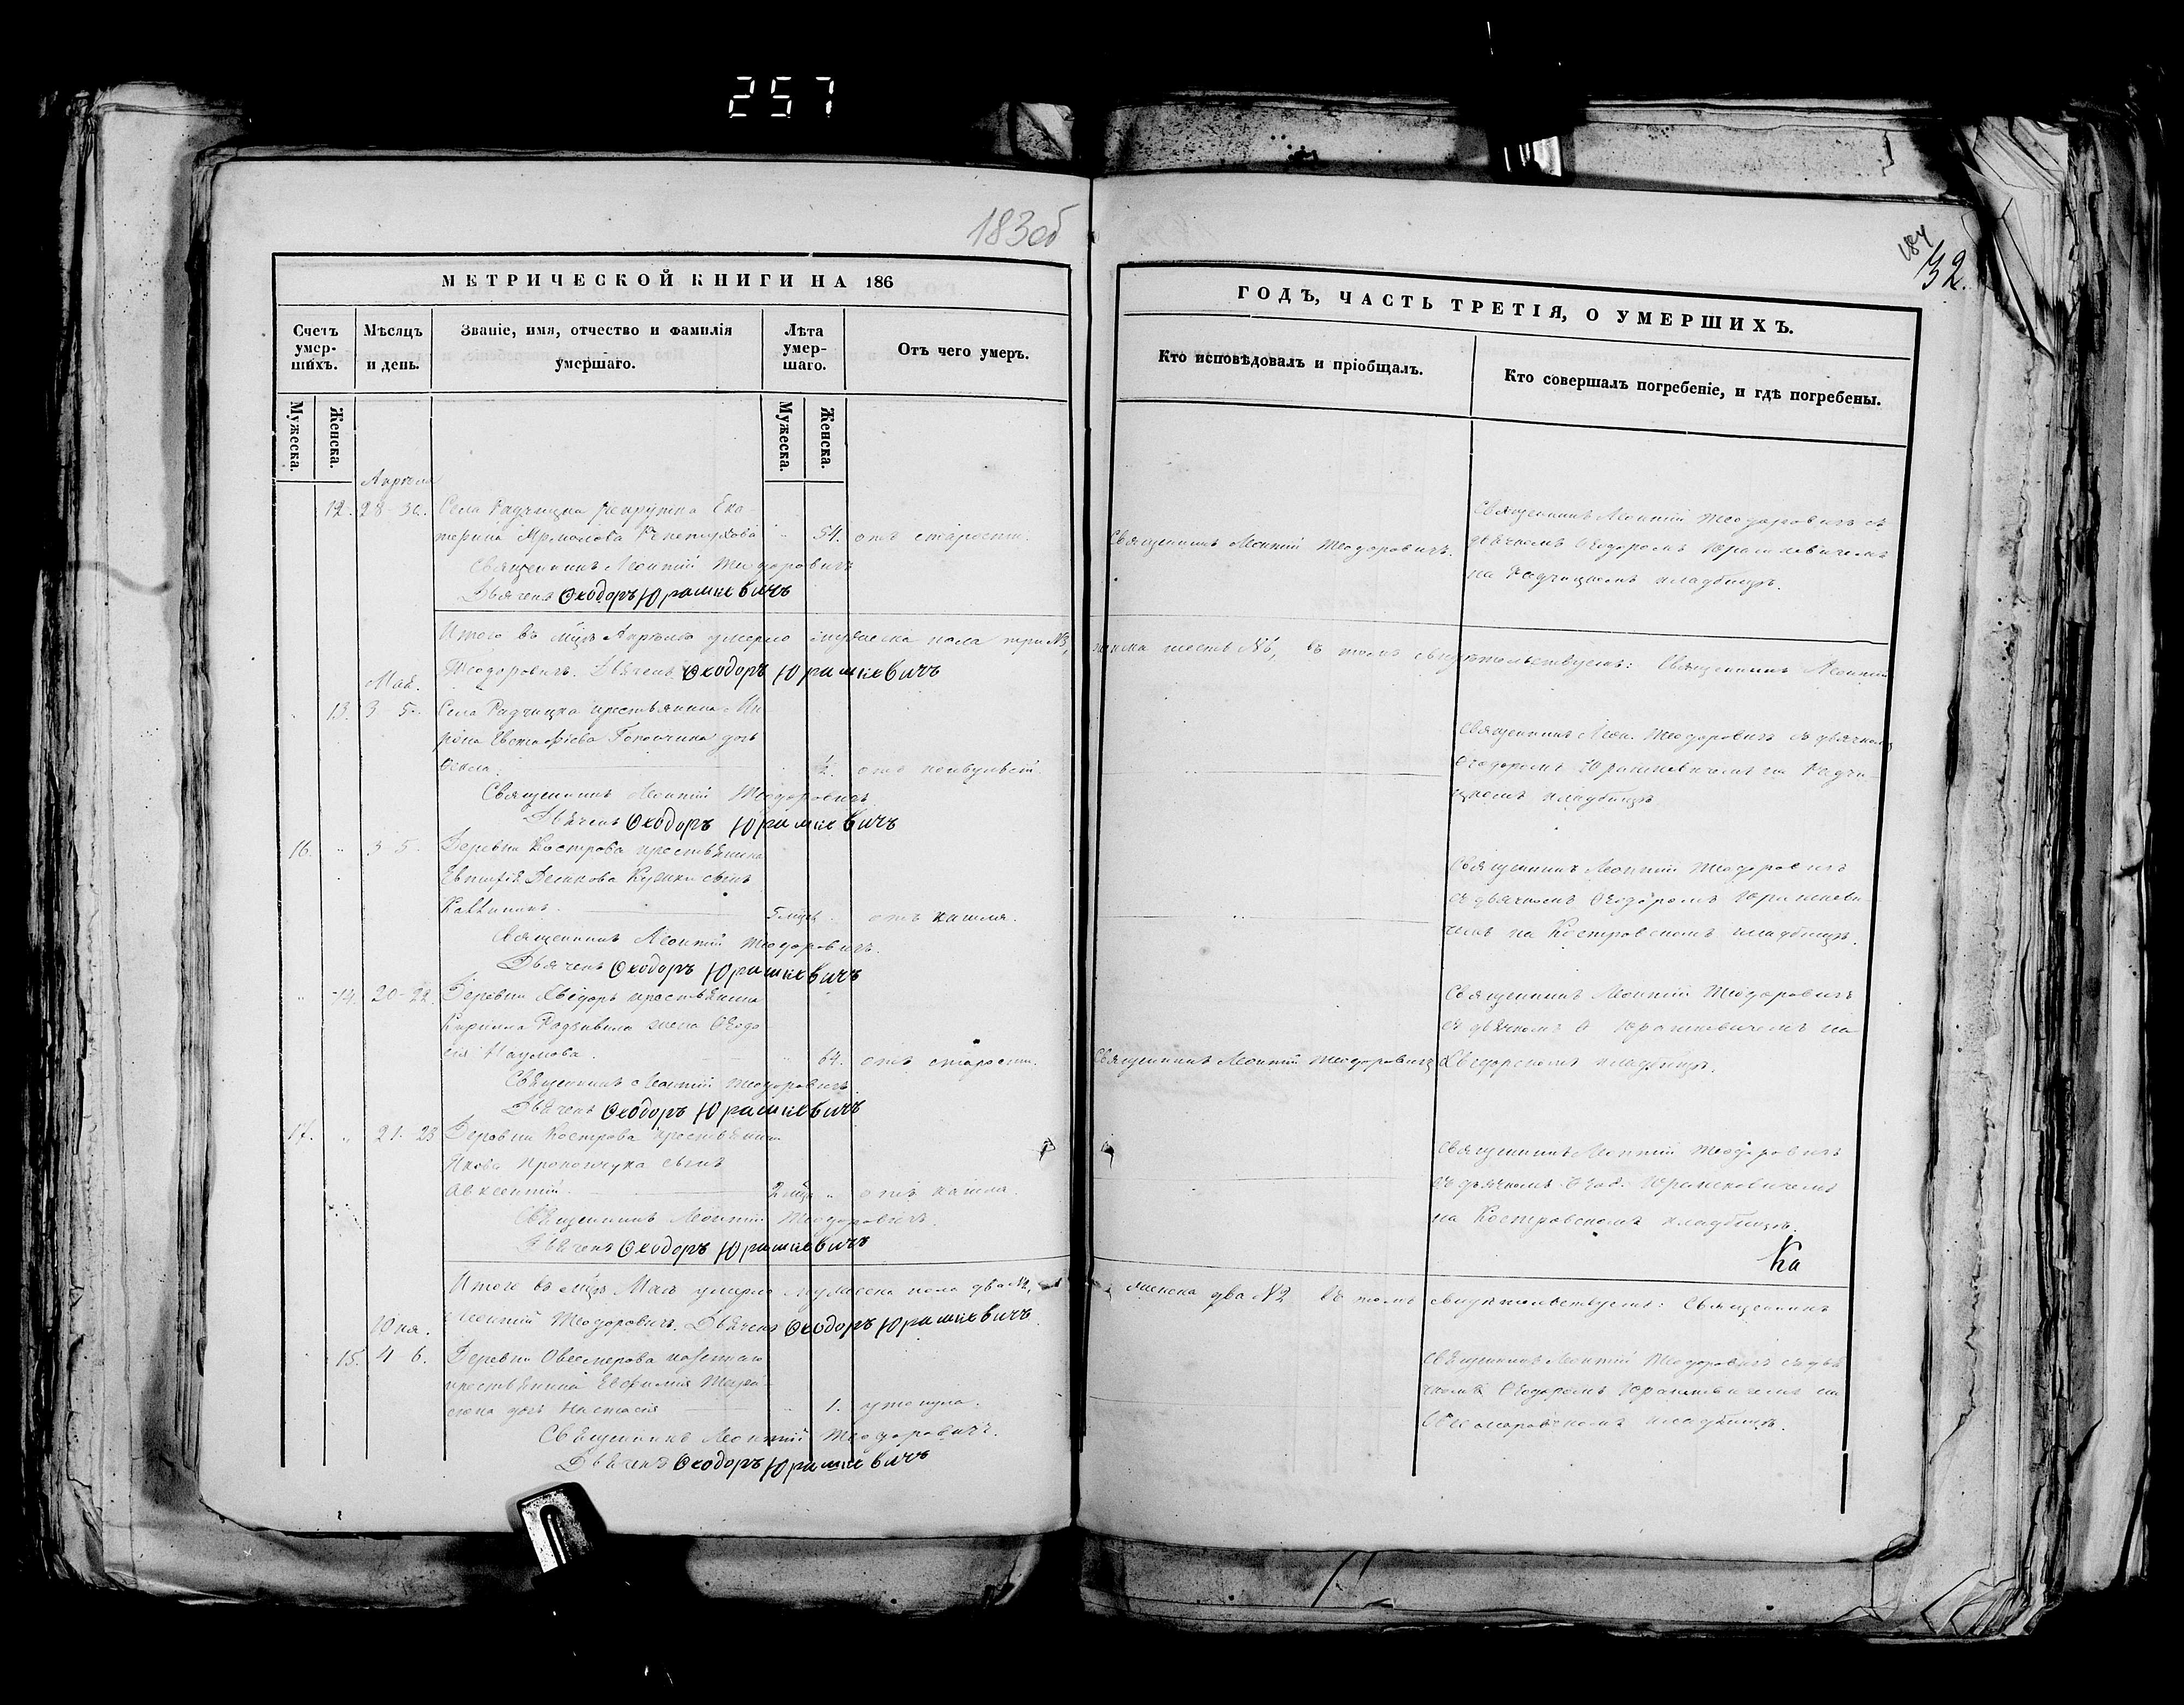 257
183об
184
32.
МЕТРИЧЕСКОЙ КНИГИ НА 186
Счетъ умер- шихъ.
Мѣсяцъ и день.
Званіе, имя, отчество и фамилія умершаго.
Лѣта умер- шаго.
Отъ чего умеръ.
Мужеска.
Женска.
Мужеска.
Женска.
Апрѣля
12. 28 30. Села Радчицка Ека-
терина Ярмолова 54. отъ старости.
Священникъ Леонтій Теодоровичъ
Дьячекъ Ѳеодоръ Юрашкевичъ
Итого въ мцѣ Апрѣлѣ умерло мужеска пола три №3,
Теодоровичъ. Дьячекъ Ѳеодоръ Юрашкевичъ
Мая.
13. 3 5. Села Радчицка крестьянина Ми
рона Евстафіева дочь
½. отъ
Священникъ Леонтій Теодоровичъ.
Дьячекъ Ѳеодоръ Юрашкевичъ
16. " 3 5. Деревни Кострова крестьянина
сынъ
5 мцъ. отъ кашля.
Священникъ Леонтій Теодоровичъ.
Дьячекъ Ѳеодоръ Юрашкевичъ
" 14. 20-22. Деревни Хвѣдоръ крестьянина
Кирилла жена Ѳеодо-
сія Наумова. " 64. отъ старости.
Священникъ Леонтій Теодоровичъ
Дьячекъ Ѳеодоръ Юрашкевичъ
17. " 21. 23 Деревни Кострова крестьянина
Якова Прокопчука сынъ
Авксентій. 2 мца " отъ кашля.
Священникъ Леонтій Теодоровичъ.
Дьячекъ Ѳеодоръ Юрашкевичъ
Итого въ мцѣ Маѣ умерло мужеска пола два №2,
Леонтій Теодоровичъ. Дьячекъ Ѳеодоръ Юрашкевичъ.
Юня.
15. 4 6. Деревни
крестьянина Евфимія
дочь Настасія " 1. утонула.
Священникъ Леонтій Теодоровичъ.
Дьячекъ Ѳеодоръ Юрашкевичъ
ГОДЪ, ЧАСТЬ ТРЕТІЯ, О УМЕРШИХЪ.
Кто исповѣдовалъ и пріобщалъ.
Кто совершалъ погребеніе, и гдѣ погребены.
Священникъ Леонтій Теодоровичъ.
Священникъ Леонтій Теодоровичъ съ
дьячкомъ Ѳеодоромъ Юрашкевичемъ
на Радчицкомъ кладбищѣ.
женска шесть №6, въ томъ свидѣтельствуемъ: Священникъ Леонтій
Священникъ Леон. Теодоровичъ съ дьячкомъ
Ѳеодоромъ Юрашкевичемъ на Радчи-
цкомъ кладбищѣ
Священникъ Леонтій Теодоровичъ
съ дьячкомъ Ѳеодоромъ Юрашкеви
чемъ на Костровскомъ кладбищѣ.
Священникъ Леонтій Теодоровичъ
Священникъ Леонтій Теодоровичъ
съ дьячкомъ Ѳ Юрашкевичемъ на
Хвѣдорскомъ кладбищѣ.
Священникъ Леонтій Теодоровичъ
съ дьячкомъ Ѳеод. Юрашкевичемъ
на Костровскомъ кладбищѣ.
Ка
женска два №2 въ томъ свидѣтельствуемъ: Священникъ
Священникъ Леонтій Теодоровичъ съ дья
чкомъ Ѳеодоромъ Юрашкевичемъ на
кладбищѣ.